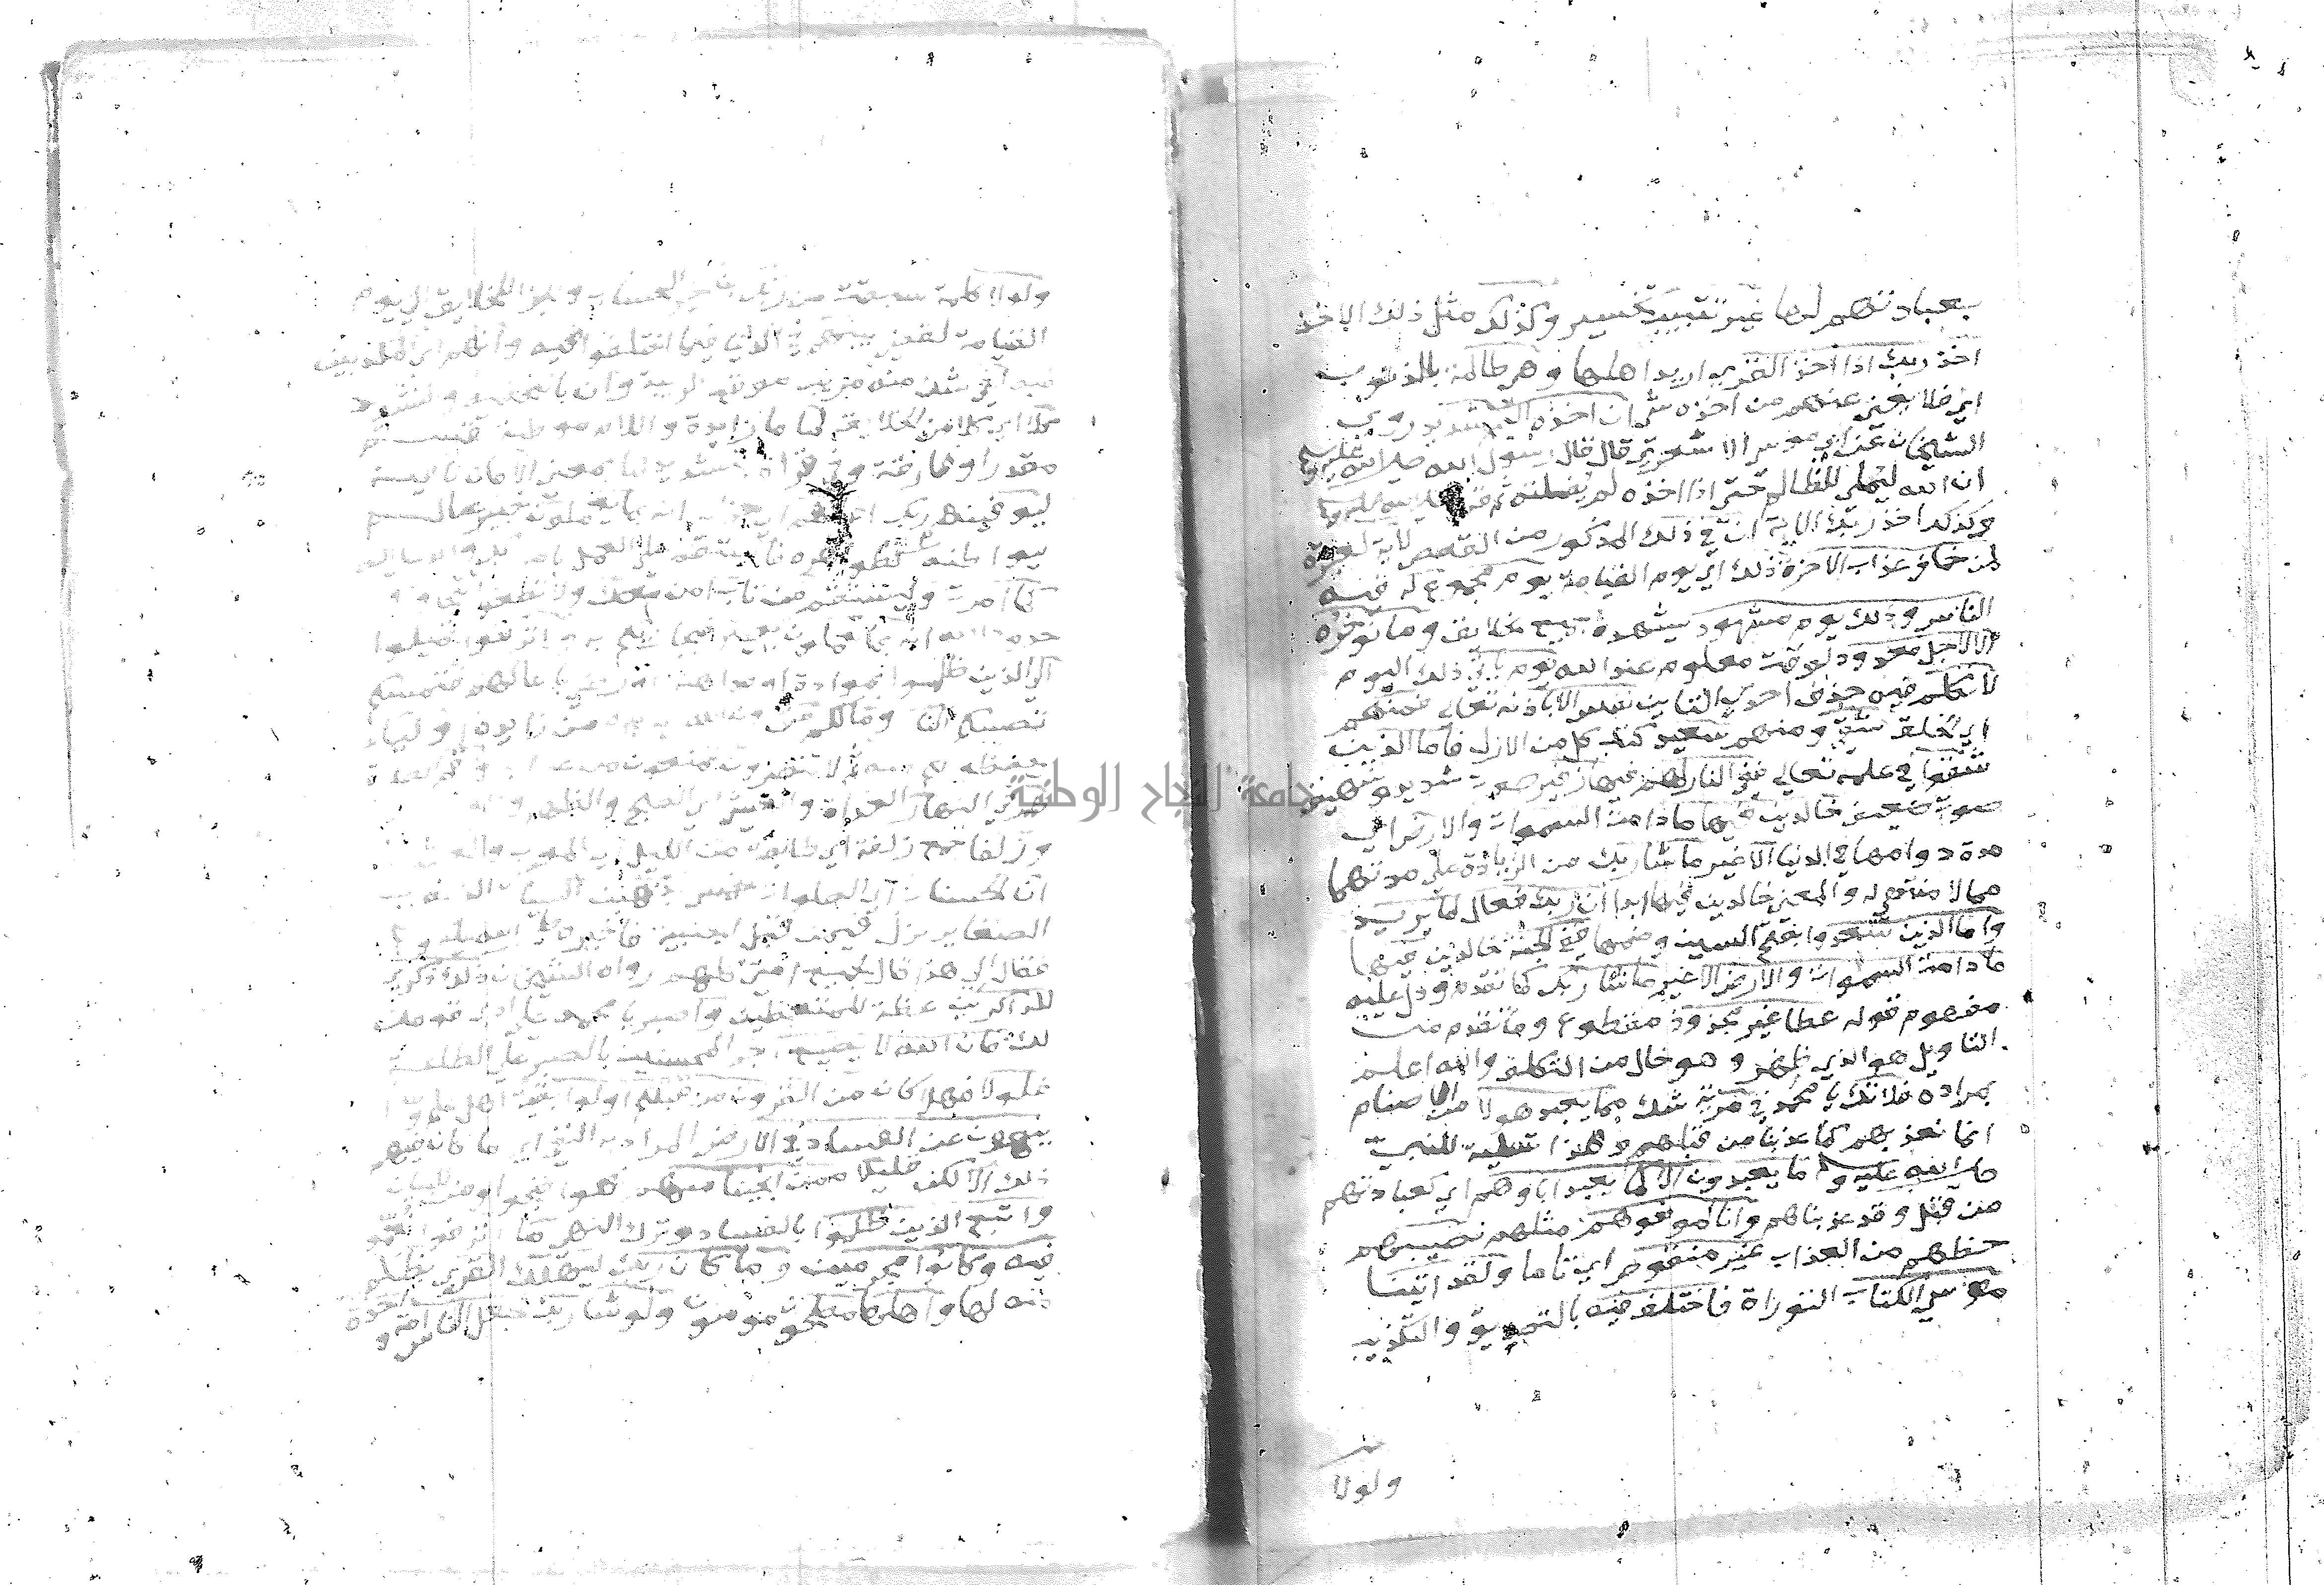 بعبادتهم لها غير تتبيب تخسير وكذلك مثل ذلك الاخذ
اخذ ربك اذا اخذ القرى اريد اهلها وهي ظالمة بالذنوب
اي فلا يغني عنهم من اخذه شي ان اخذه اليم شديد روى
الشيخان عن ابي موسى الاشعري قال قال رسول الله صلى الله عليه وسلم
ان الله ليملي للظالم حتى اذا اخذه لم يفلته ثم قرا
وكذلك اخذ ربك الاية ان في ذلك المذكور من القصص لاية لعبرة
لمن خاف عذاب الاخرة ذلك اي يوم القيامة يوم مجموع له فيه
الناس وذلك يوم مشهود يشهده جميع الخلايق وما نوخره
الا لاجل معدود لوقت معلوم عند الله يوم ياتي ذلك اليوم
لا تكلم فيه حذف احدى التايين نفس الا باذنه تعالى فمنهم
اي الخلق شقي ومنهم سعيد كتب كل من الازل فاما الذين
شقوا في علمه تعالى ففي النار لهم فيها زفير صوت شديد وشهيق
صوت ضعيف خالدين فيها ما دامت السموات والارض اي
مدة دوامهما في الدنيا الا غير ما شا ربك من الزيادة على مدتهما
مما لا منتهى له والمعنى خالدين فيها ابدا ان ربك فعال لما يريد
واما الذين سعدوا بفتح السين وضمها ففي الجنة خالدين فيها
ما دامت السموات والارض الا غير ما شا ربك كما تقدم ودل عليه
مفهوم قوله عطا غير مجذوذ مقطوع وما تقدم من
التاويل هو الذي ظهر وهو خال من التكلف والله اعلم
بمراده فلا تك يا محمد في مرية شك مما يعبد هولا من الاصنام
انا نعذبهم كما عذبنا من قبلهم وهذا تسلية للنبي
صلى الله عليه و ما يعبدون الا كما يعبد اباوهم اي كعبادتهم
من قبل وقد عذبناهم وانا لموفوهم مثلهم نصيبهم
حظهم من العذاب غير منقوص اي تاما ولقد اتينا
موسى الكتاب التوراة فاختلف فيه بالتصديق والتكذيب
ولولا
ولولا كلمة سبقت من ربك بتاخير الحساب والجزا للخلايق الى يوم
القيامة لقضي بينهم في الدنيا فيما اختلفوا فيه وانهم اي المكذبين
لفي شك منه مريب موقع الريبة وان بالتخفيف والتشديد
كلا اي كل من الخلايق لما ما زايدة واللام موطية لقسم
مقدر او فارقة وفي قراة بتشديد لما بمعنى الا فان نافية
ليوفينهم ربك اعمالهم اي جزاها انه بما يعملون خبير عالم
ببواطنه كظواهره فاستقم على العمل بامر ربك والدعا اليه
كما امرت وليستقم من تاب امن معك ولا تطغوا تجاوزوا
حدود الله انه بما تعملون بصير فيجازيكم به ولا تركنوا تميلوا
الى الذين ظلموا بموادة او مداهنة او رضى باعمالهم فتمسكم
تصيبكم النار وما لكم من دون الله من زايدة اوليا
يحفظونكم منه ثم لا تنصرون تمنعون من عذابه واقم الصلوة
طرفي النهار الغداة والعشي اي الصبح والظهر والعصر
وزلفا جمع زلفة اي طايفة من الليل اي المغرب والعشا
ان الحسنات اي الصلوات الخمس يذهبن السيات الذنوب
الصغاير نزل فيمن قبل اجنبية فاخبره صلى الله عليه و
فقال الي هذا قال لجميع امتي كلهم رواه الشيخان ذلك ذكرى
للذاكرين عظة للمتعظين واصبر يا محمد على اذى قومك
فان الله لا يضيع اجر المحسنين بالصبر على الطاعة
فلولا فهلا كان من القرون من قبلكم اولوا بقية
ينهون عن الفساد في الارض المراد به النفي اي ما كان فيهم
ذلك الا لكن قليلا ممن انجينا منهم نهوا فنجوا ومن للبيان
واتبع الذين ظلموا بالفساد وترك النهي ما اترفوا نعموا
فيه وكانوا مجرمين وما كان ربك ليهلك القرى بظلم
منه لها واهلها مصلحون مومنون ولو شا ربك لجعل الناس امة واحدة
جامعة النجاح الوطنية